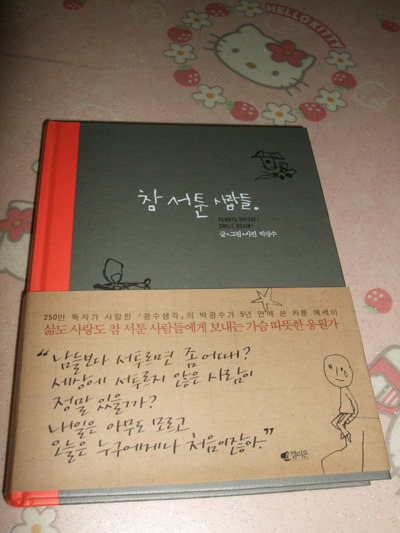 HELLO KITTY
참 서툰 사람들.
글+그림+사진 박광수
250만 독자가 사랑한 『광수생각』의 박광수가 5년 만에 쓴 카툰 에세이
삶도 사랑도 참 서툰 사람들에게 보내는 가슴 따뜻한 응원가
“남들보다 서투르면 좀 어때?
세상에 서투르지 않은 사람이
정말 있을까?
내일은 아무도 모르고
오늘은 누구에게나 처음이잖아.”
갤리온